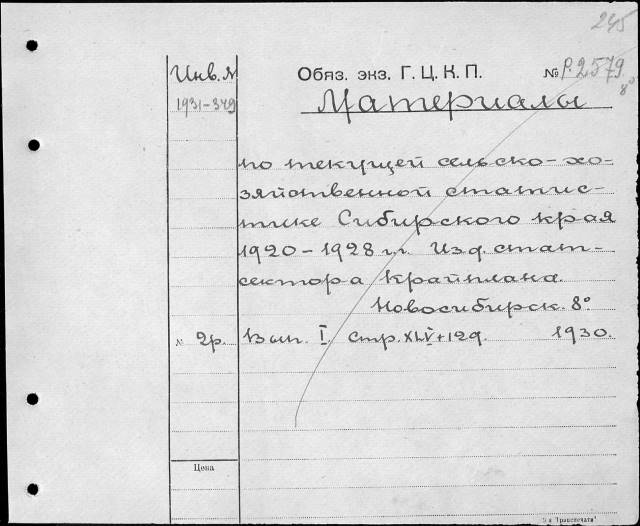 245
Инв. №
Обяз. экз. Г. Ц. К. П.
№ Р.2579.
8°
1931-349
Материалы
по текущей сельско-хо-
зяйственной статис-
тике Сибирского края
1920-1928 гг. Изд. стат-
сектора Крайплана.
Новосибирск. 8°
№ 2р. Вып. I. Стр. XLV+129. 1930.
Цена
"Транспечати"